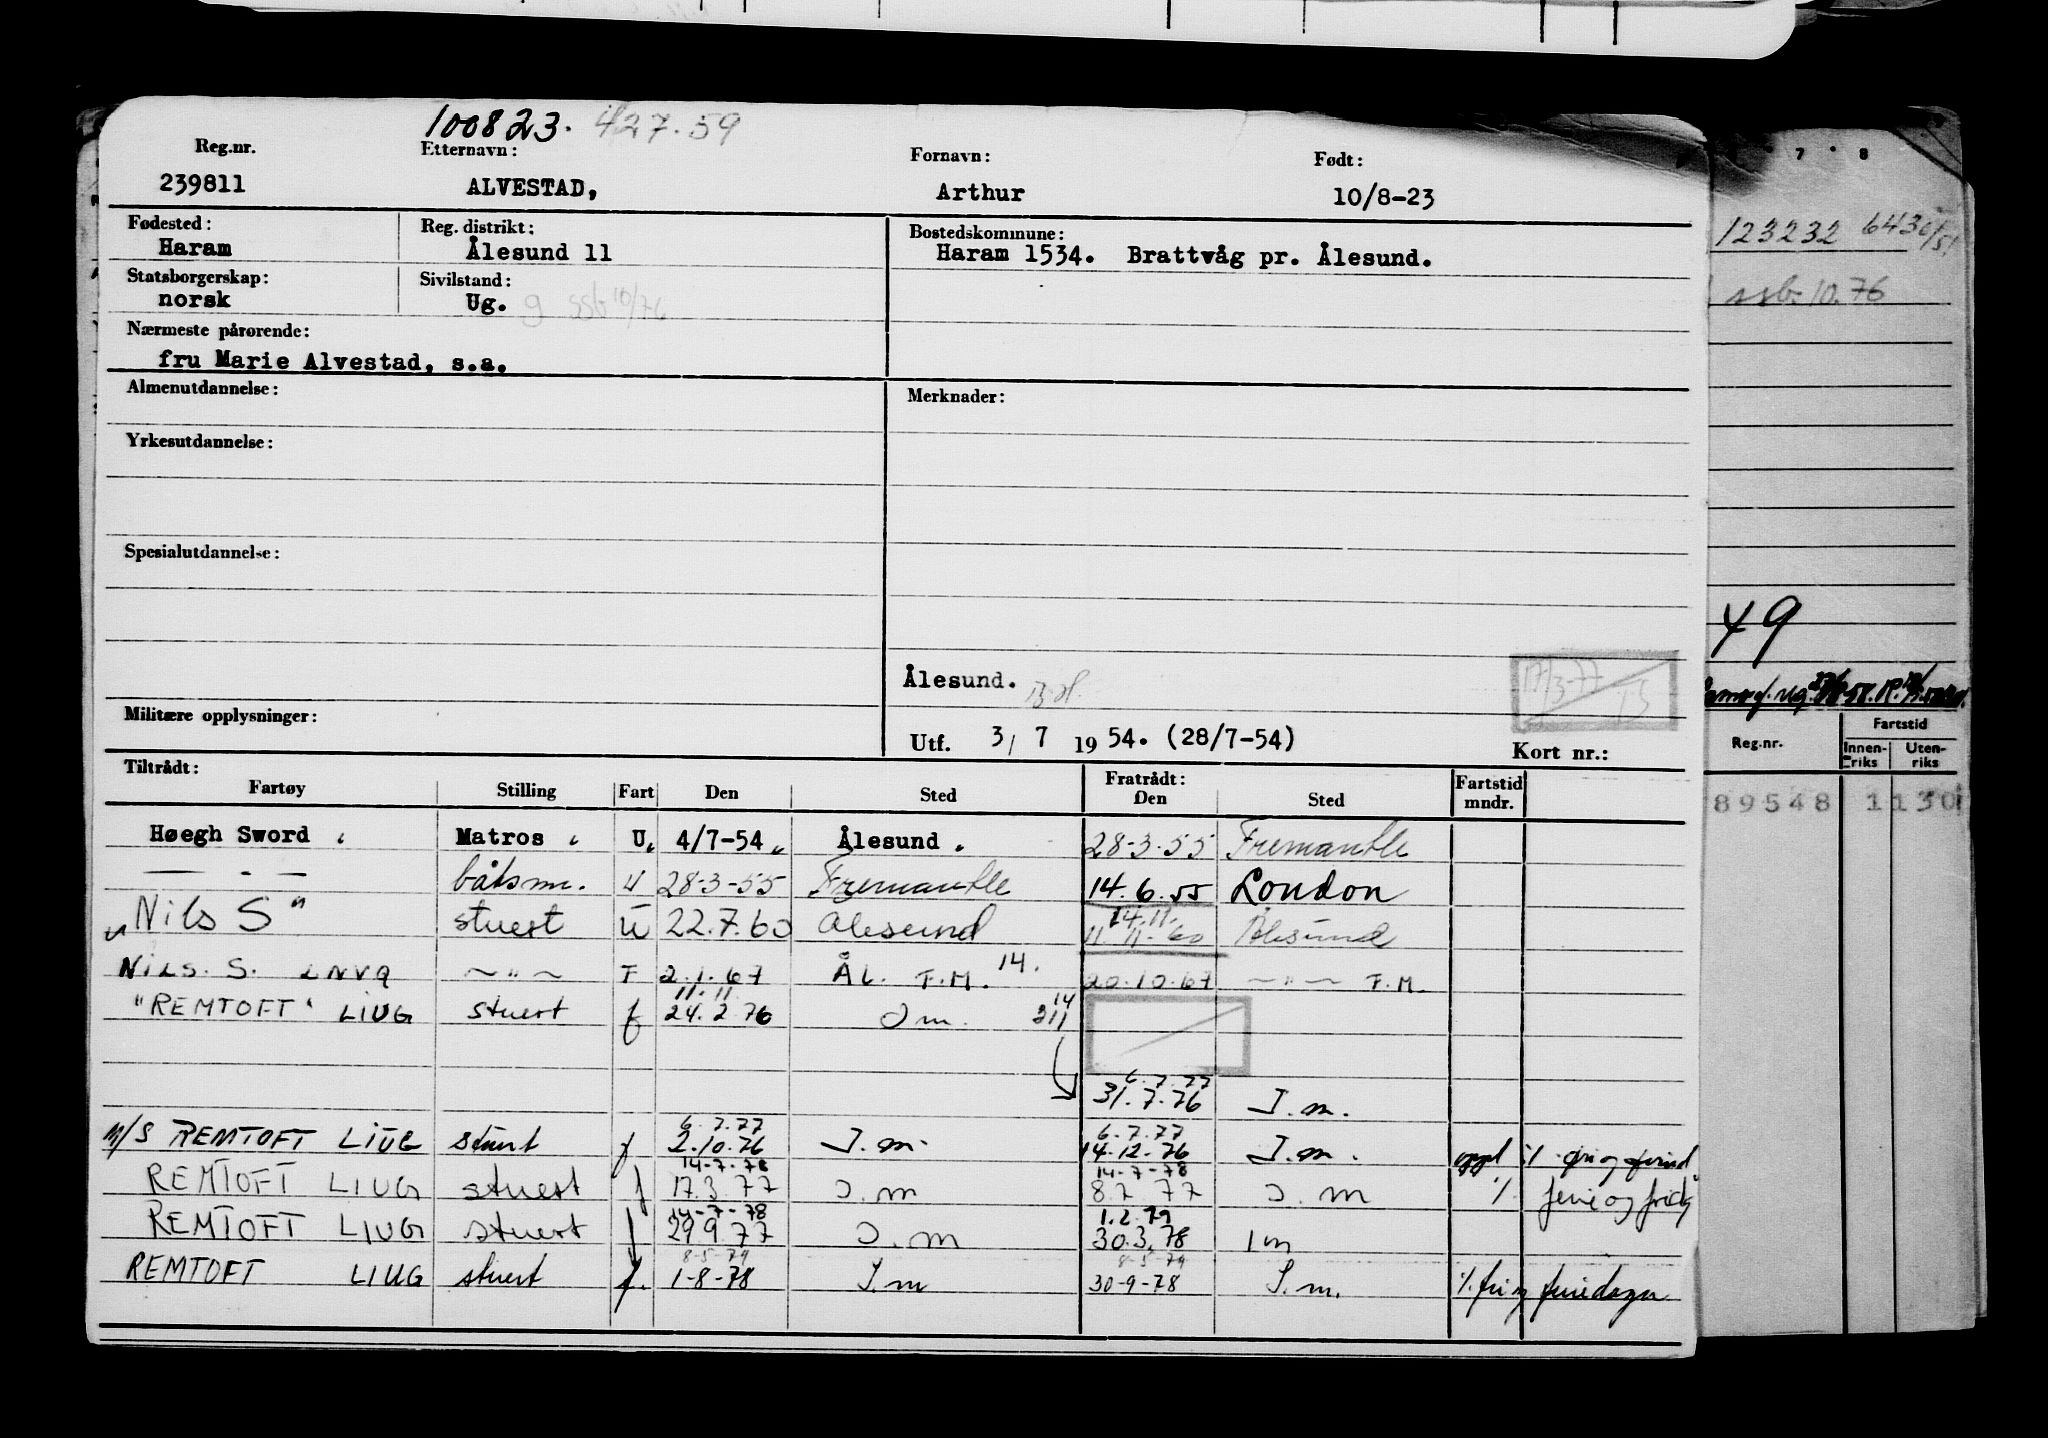 100823. 427.59
Reg.nr. Etternavn: Fornavn: Født:
239811 ALVESTAD, Arthur 10/8-23
Fødested: Reg. distrikt: Bostedskommune:
Haram Ålesund 11 Haram 1534. Brattvåg pr. Ålesund.
Statsborgerskap: Sivilstand:
norsk Ug. g ssb 10/76
Nærmeste pårørende:
fru Marie Alvestad, s.a.
Almenutdannelse: Merknader:
Yrkesutdannelse:
Spesialutdannelse:
Ålesund.
17/3-77
Militære opplysninger:
Utf. 3/ 7 1954. (28/7-54) Kort nr.:
Tiltrådt: Fratrådt: Fartstid
Fartøy Stilling Fart Den Sted Den Sted mndr.
Høegh Sword Matros U. 4/7-54 Ålesund. 28-3-55 Fremantle
— " — båtsm. U 28-3-55 Fremantle 14.6.55 London
14.11.
"Nils S" stuert U 22.7.60 Ålesund 11-11-60 Ålesund
NILS. S. LNVQ ~ " ~ F 2.1.67 ÅL. F.M. 14. 20.10.67 ~ " ~ F.M.
11.11 14
"REMTOFT" LIUG stuert f 24.2.76 I m. 211
6.7.77
31.7.76 I.m.
6.7.77 6.7.77
M/S REMTOFT LIUG stuert f 2.10.76 I.m. 14-12-76 I.m.
14-7-78 14-7-78
REMTOFT LIUG stuert f 17.3 77 I.m 8.7 77 I.m % ferie og frid
14-7-78 1.2.79
REMTOFT LIUG stuert f 29 9 77 I.m 30.3.78 I m
8-5-79 8-5-79
REMTOFT LIUG stuert f. 1-8-78 I.m 30-9-78 I.m. %. fri og feriedager
7 8
123232 6436/51
ssb. 10. 76
49
Fartstid
Reg.nr. Innen-riks Uten-riks
89548 1130